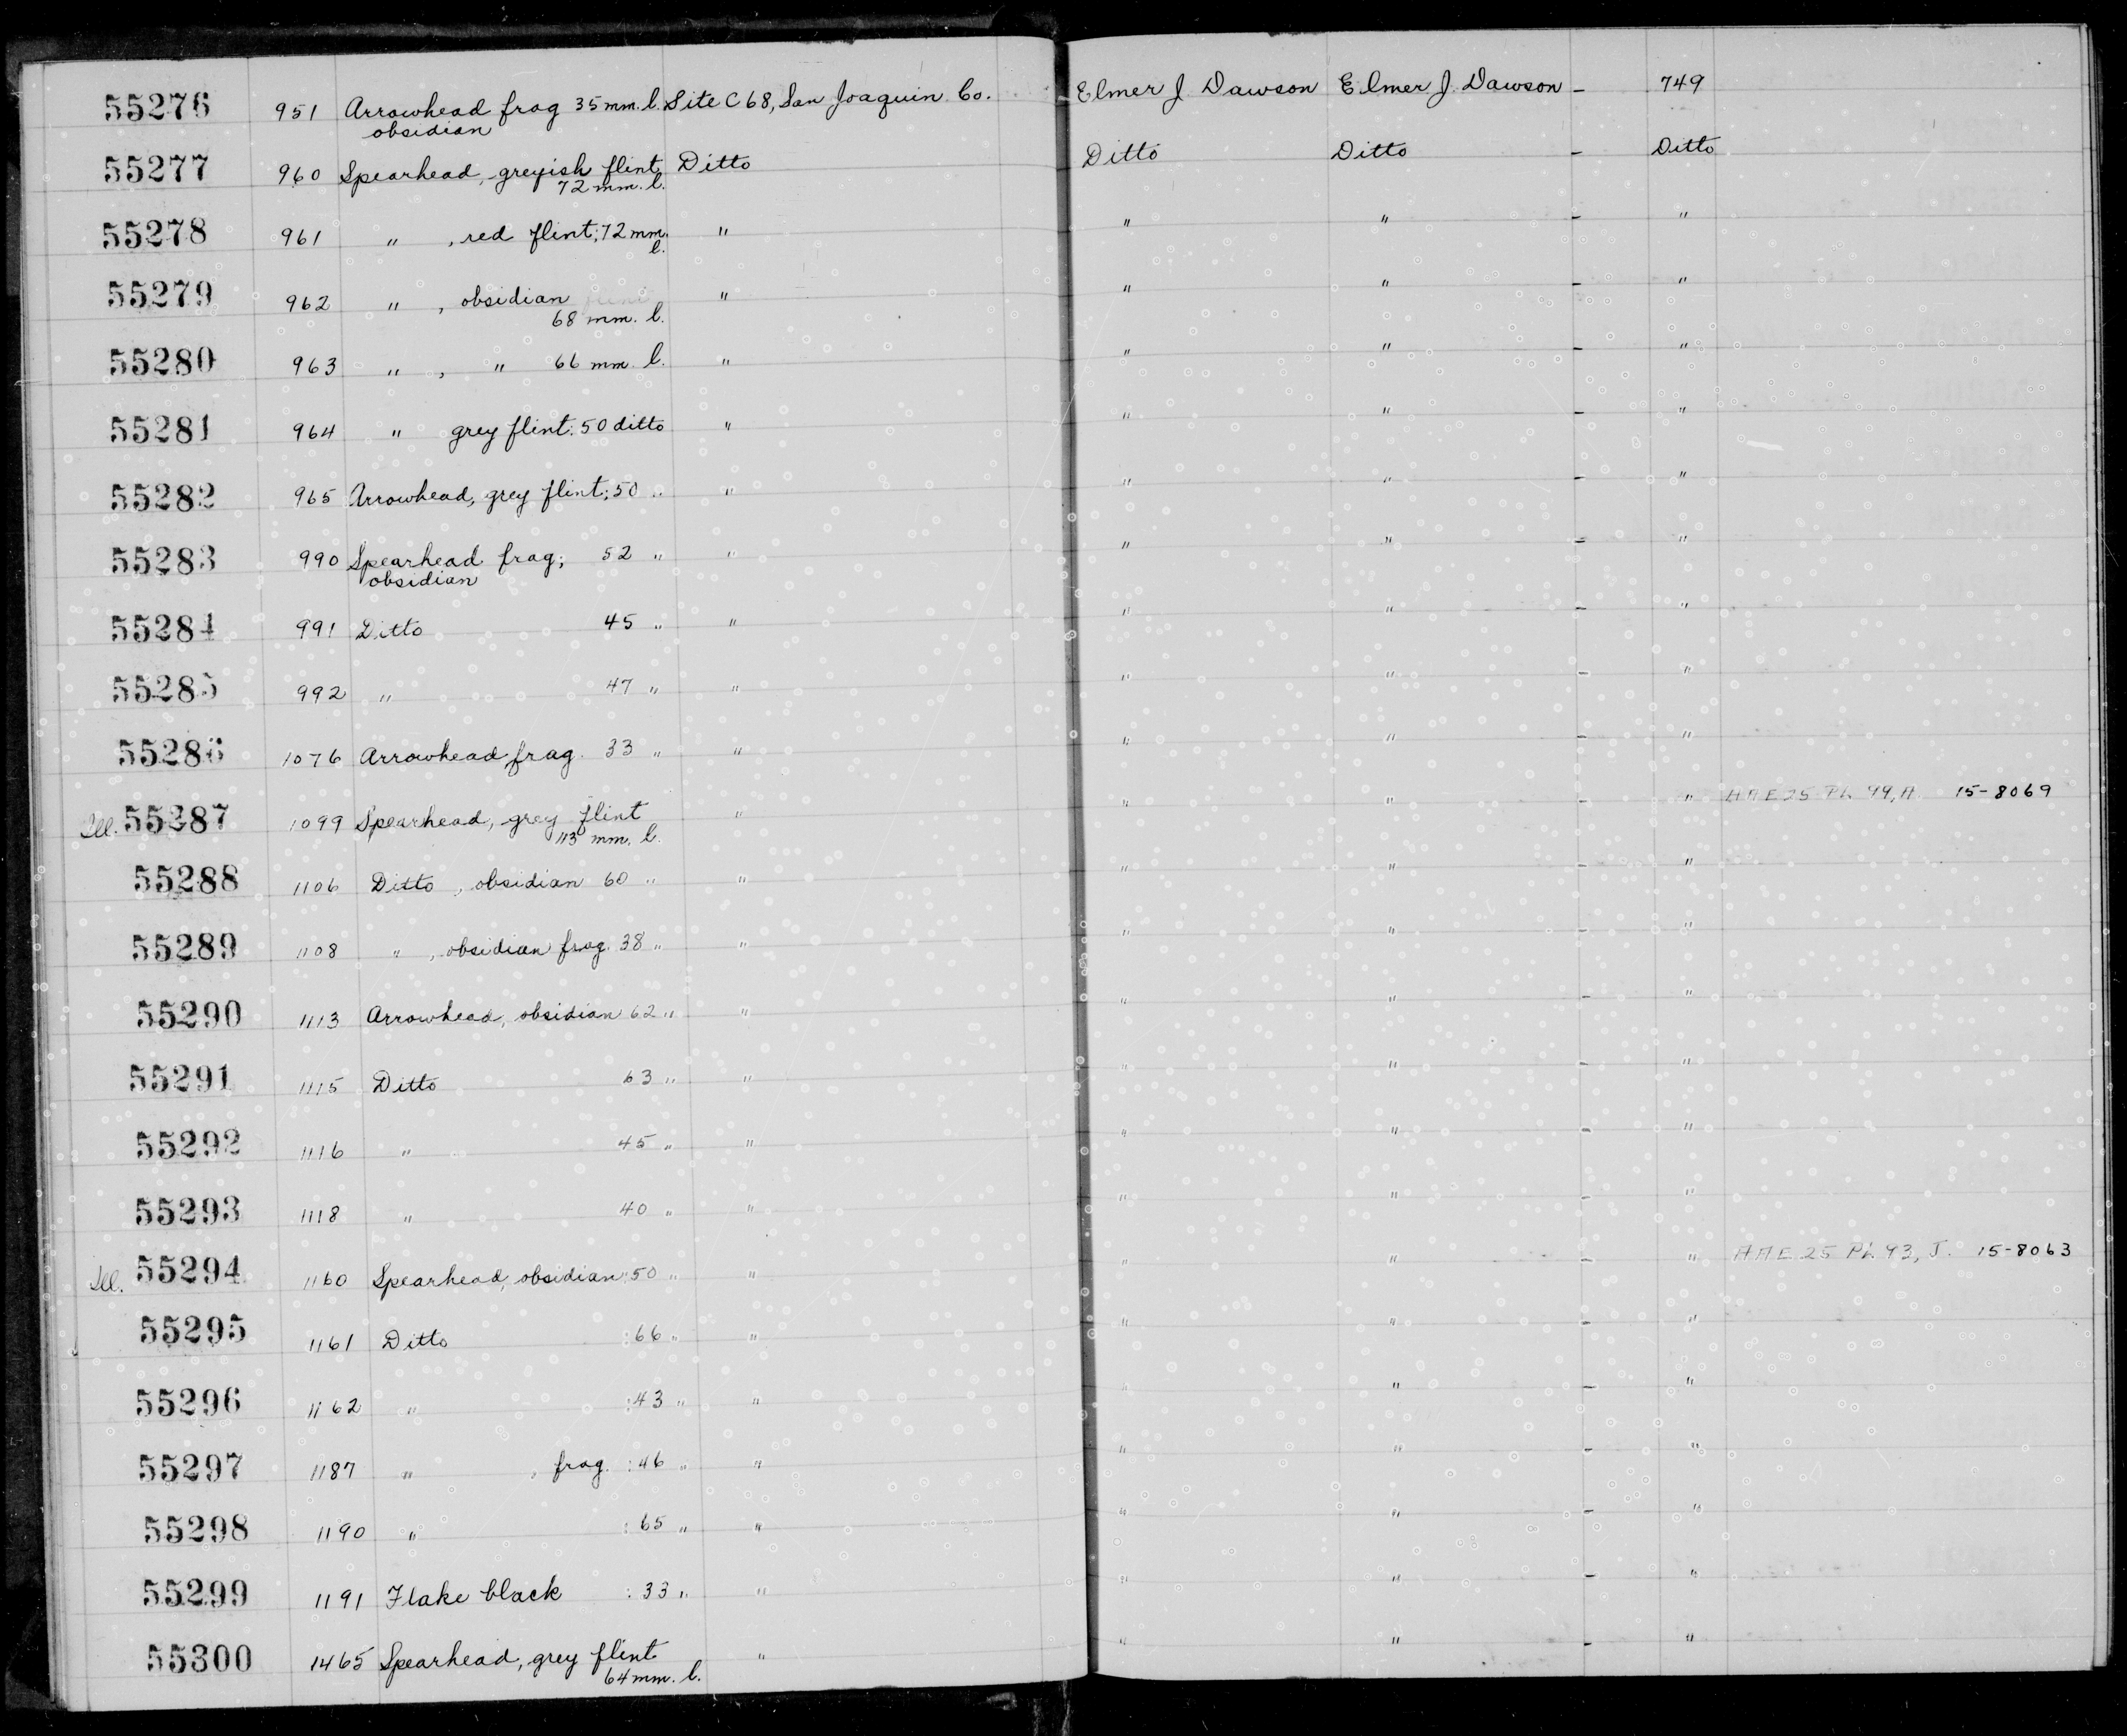 55276 951 Arrowhead frag 35 mm. l. Site C 68, San Joaquin Co. Elmer J Dawson Elmer J. Dawson - 749
obsidian
55277 960 Spearhead, greyish flint Ditto Ditto Ditto - Ditto
72 mm. l.
55278 961 " , red flint; 72 mm. " " " - "
l.
55279 962 " , obsidian " " " - "
68 mm. l.
55280 963 " , " 66 mm. l. " " " - "
55281 964 " grey flint. 50 ditto " " " - "
55282 965 Arrowhead, grey flint; 50 " " " " - "
55283 990 Spearhead frag; 52 " " " " - "
obsidian
55284 991 Ditto 45 " " " " - "
55285 992 " 47 " " " " - "
55286 1076 Arrowhead frag. 33 " " " " - "
Ill. 55287 1099 Spearhead, grey flint " " " - " 15-8069
113 mm. l.
55288 1106 Ditto , obsidian 60 " " " " - "
55289 1108 " , obsidian frag. 38 " " " " - "
55290 1113 Arrowhead, obsidian 62 " " " " - "
55291 1115 Ditto 63 " " " " - "
55292 1116 " 45 " " " " - "
55293 1118 " 40 " " " " - "
Ill. 55294 1160 Spearhead, obsidian: 50 " " " " - " AAE 25 Pl. 93, J. 15-8063
55295 1161 Ditto : 66 " " " " - "
55296 1162 " : 43 " " " " - "
55297 1187 " , frag. : 46 " " " " - "
55298 1190 " : 65 " " " " - "
55299 1191 Flake black : 33 " " " " - "
55300 1465 Spearhead, grey flint " " " - "
64 mm. l.